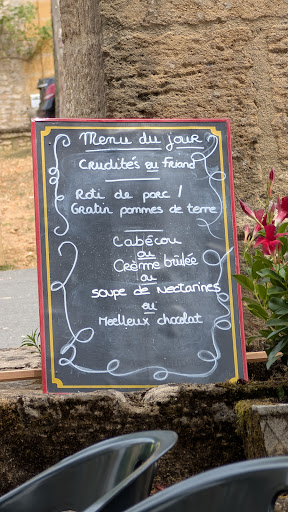 Menu du jour
Crudités ou friand
Roti de porc /
Gratin pommes de terre
Cabécou
ou
Crème brûlée
ou
soupe de Nectarines
ou
Moelleux chocolat